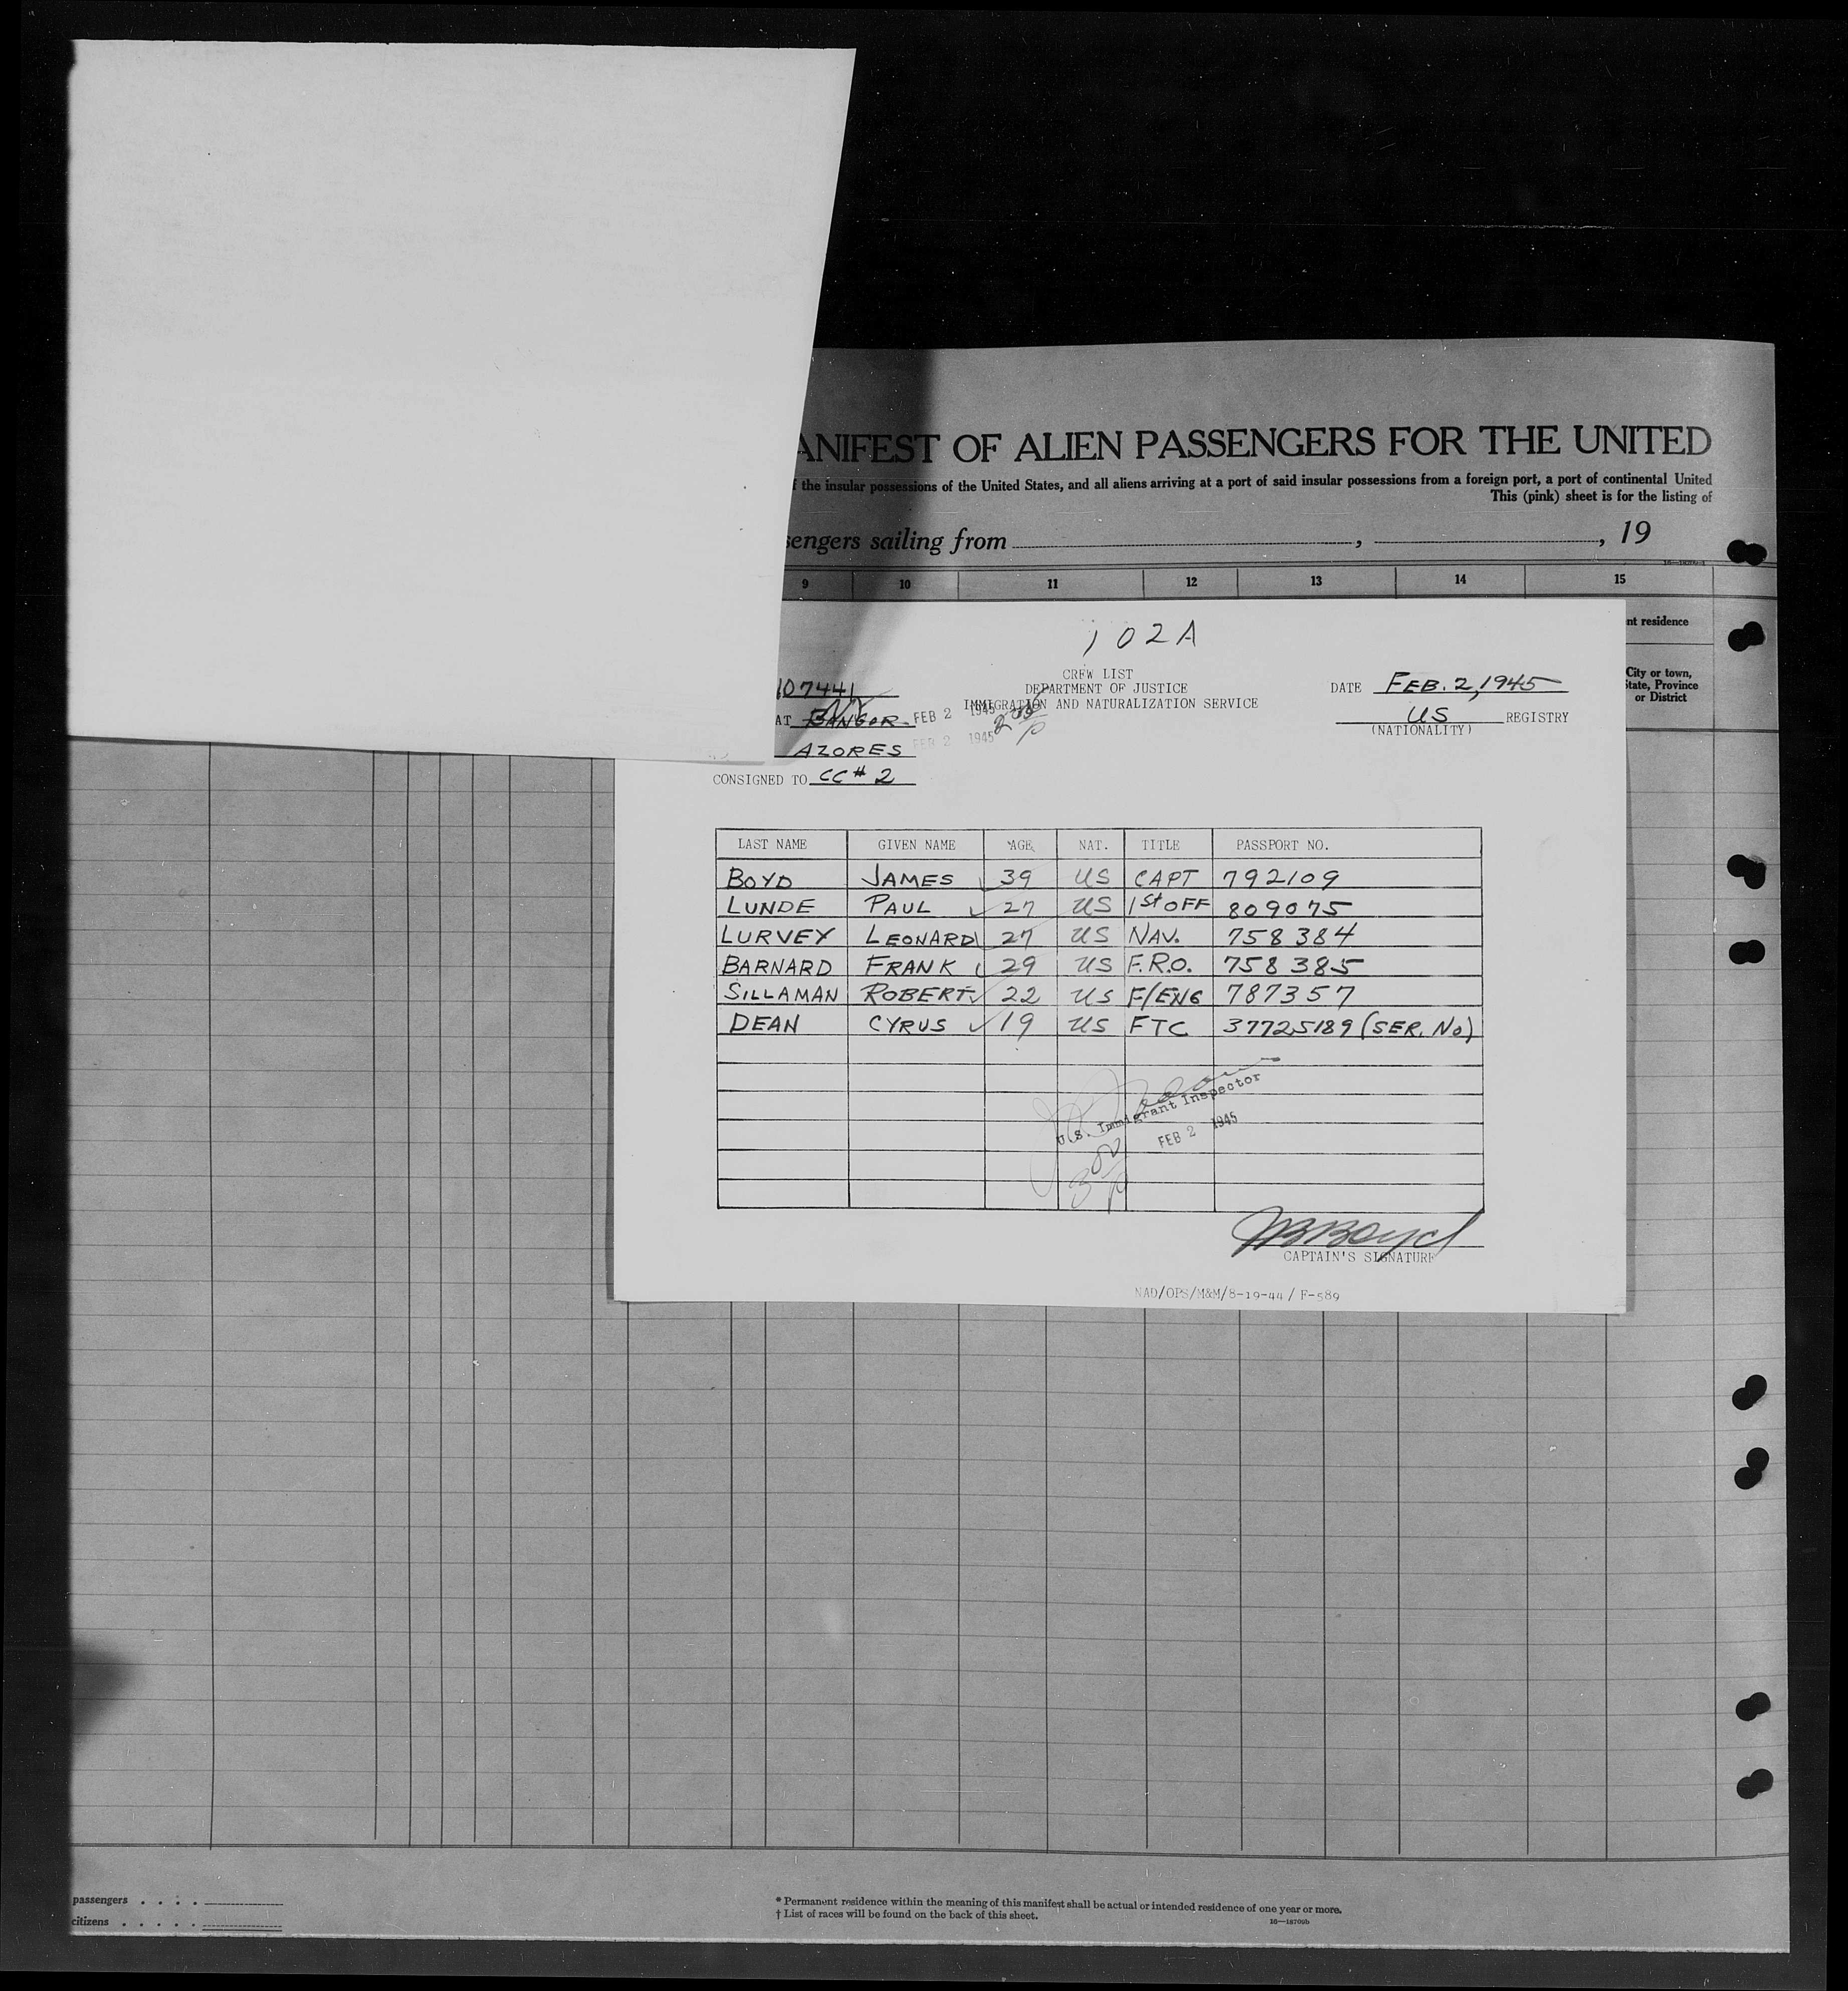 ANIFEST OF ALIEN PASSENGERS FOR THE UNITED
f the insular possessions of the United States, and all aliens arriving at a port of said insular possessions from a foreign port, a port of continental United
This (pink) sheet is for the listing of
sengers sailing from , , 19
9 10 11 12 13 14 15
nt residence
City or town,
State, Province
or District
102A
CREW LIST
DEPARTMENT OF JUSTICE
IMMIGRATION AND NATURALIZATION SERVICE
107441
DATE FEB. 2, 1945
AT BANGOR FEB 2 1945
US REGISTRY
(NATIONALITY)
AZORES FEB 2 1945
CONSIGNED TO CC# 2
LAST NAME GIVEN NAME AGE NAT. TITLE PASSPORT NO.
BOYD JAMES 39 US CAPT 792109
LUNDE PAUL 27 US 1St OFF 809075
LURVEY LEONARD 27 US NAV. 758384
BARNARD FRANK 29 US F.R.O. 758385
SILLAMAN ROBERT 22 US F/ENG 787357
DEAN CYRUS 19 US FTC 37725189 (SER. No)
U.S. Immigrant Inspector
FEB 2 1945
JBBoyd
CAPTAIN'S SIGNATURE
NAD/OPS/M&M/8-19-44 / F-589
passengers . . . .
citizens . . . . .
* Permanent residence within the meaning of this manifest shall be actual or intended residence of one year or more.
† List of races will be found on the back of this sheet.
16—18709b